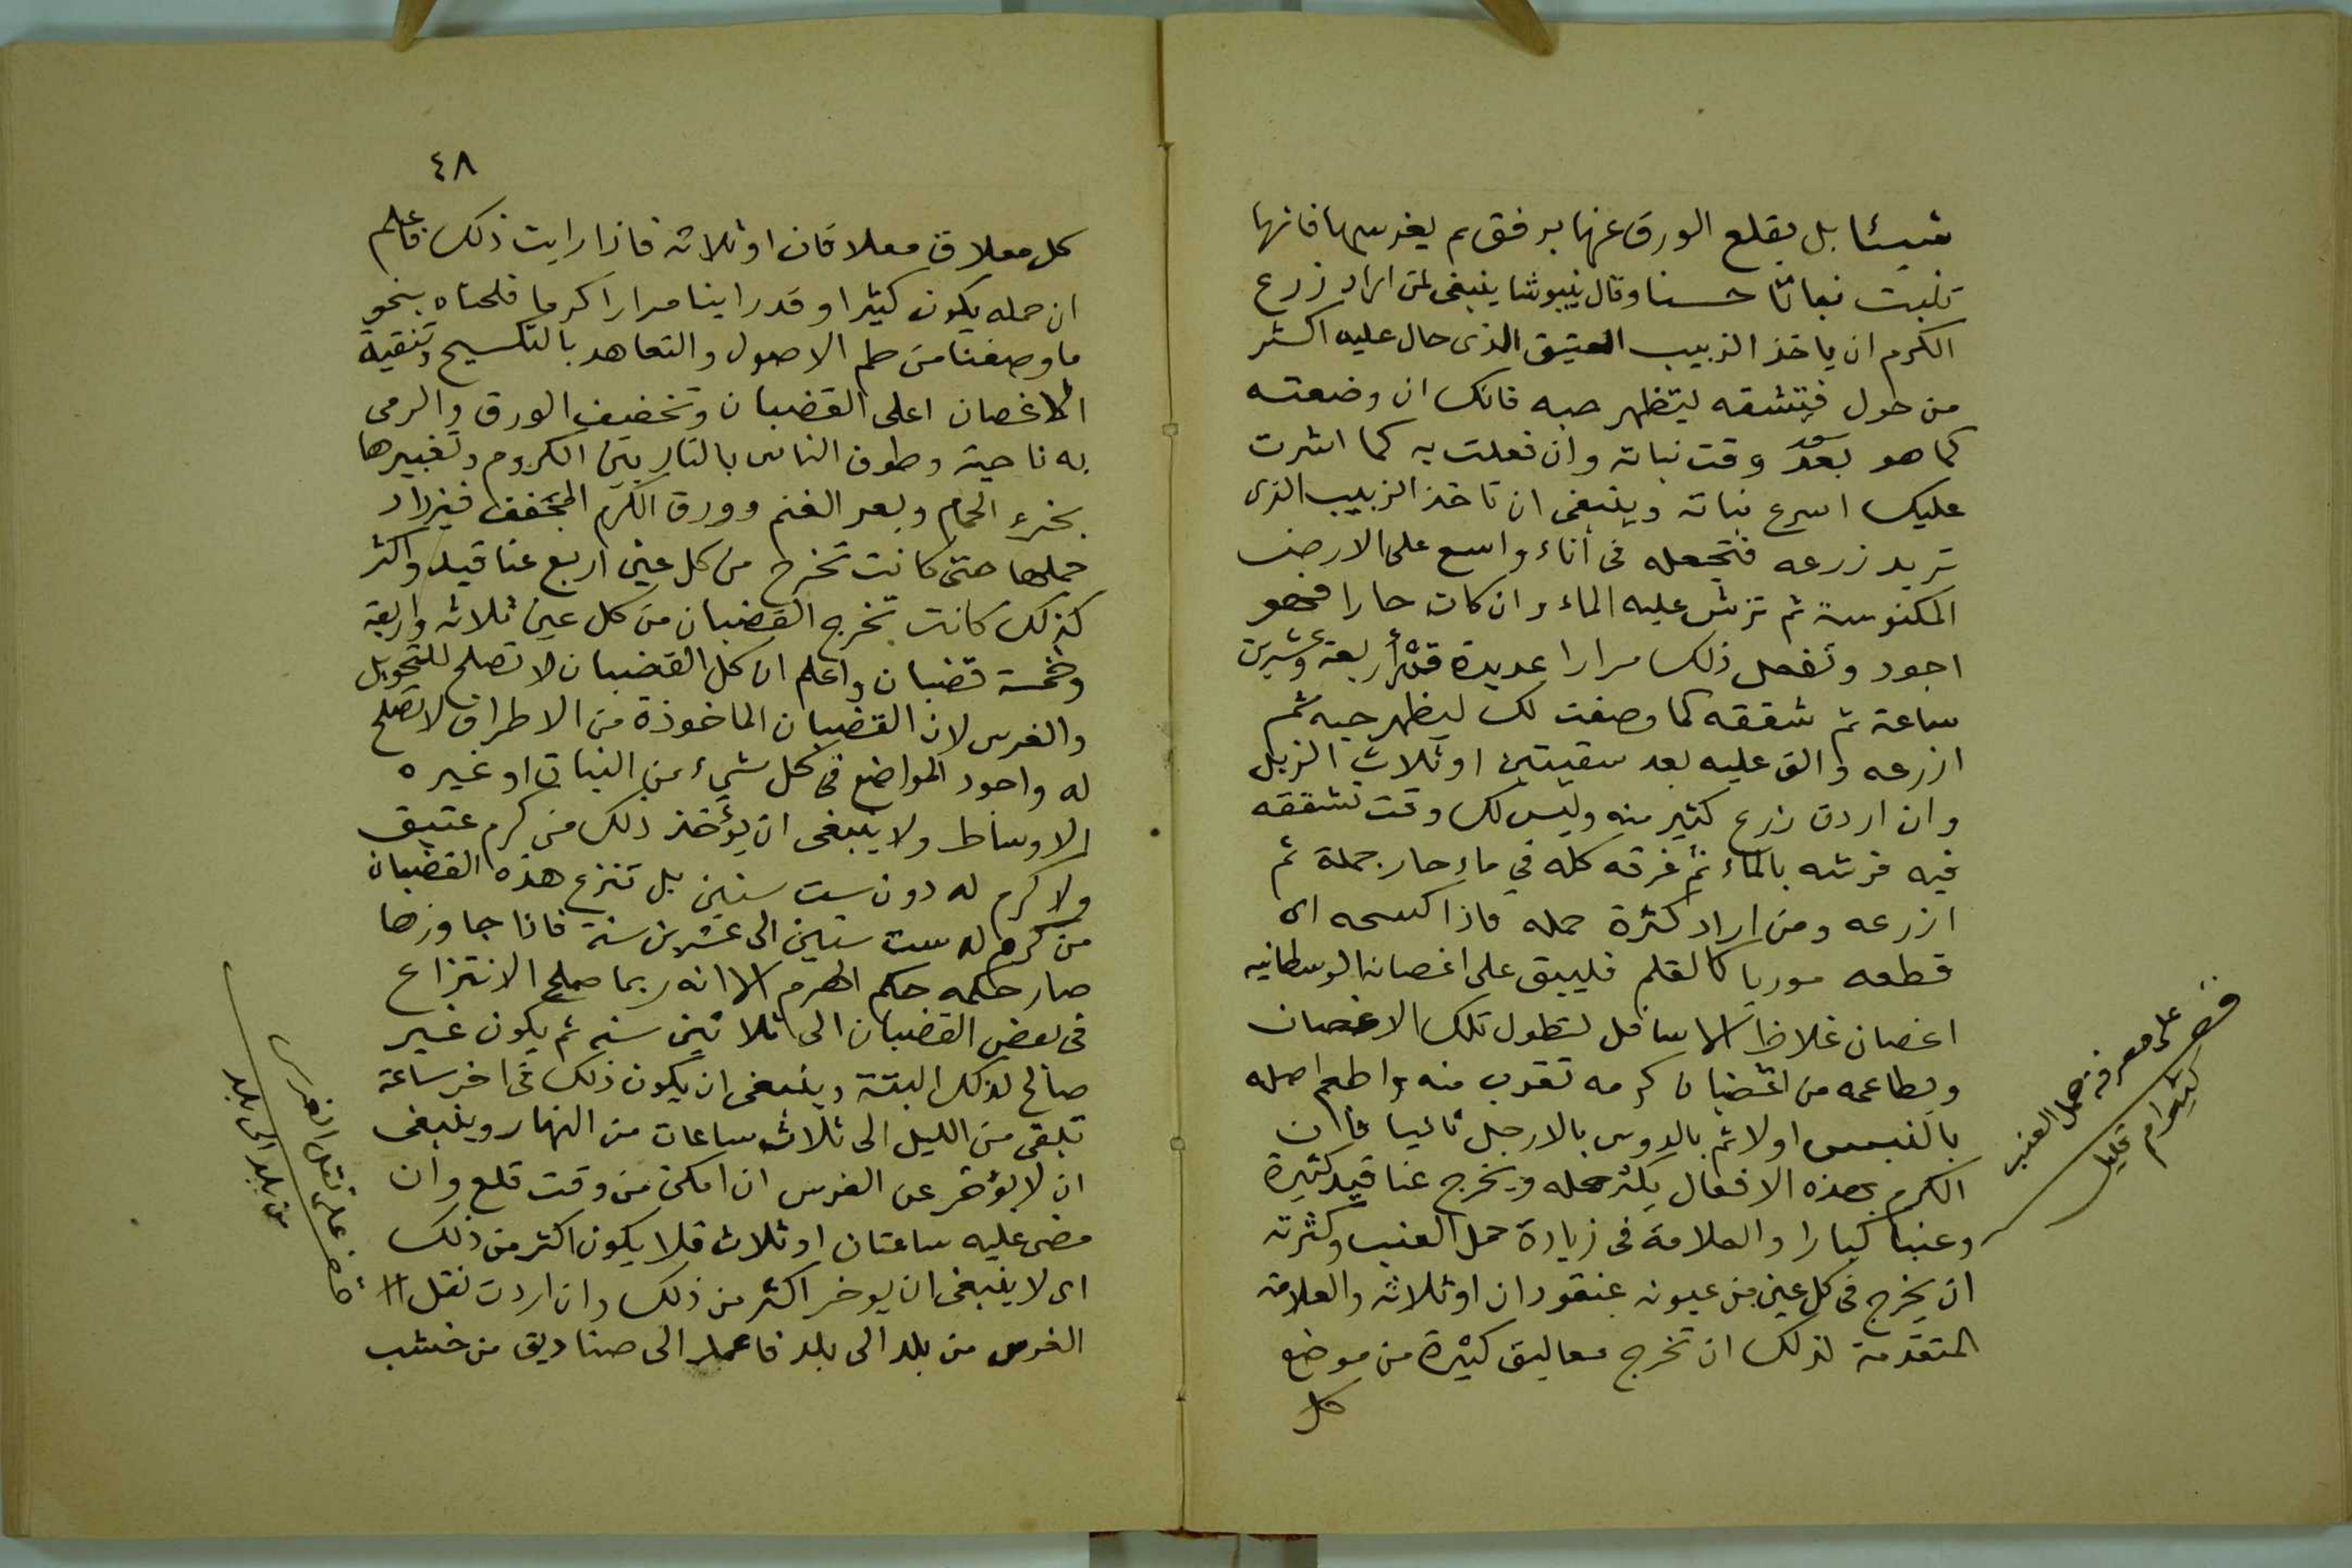 شيئا بل يقلع الورق عنها برفق ثم يغرسها فانها
تنبت نباتا حسنا وقال ينبوشا ينبغى لمن اراد زرع
الكرم ان ياخذ الزبيب العتيق الذى حال عليه اكثر
من حول فتشقه ليتظهر حبه فانك ان وضعته
كما هو بعد وقت نباته وان فعلت به كما اشرت
عليك اسرع نباته وينبغى ان تاخذ الزبيب الذى
تريد زرعه فتجعله فى أناء واسع على الارض
المكنوسة ثم ترش عليه الماء وان كان حارا فهو
اجود وتفعل ذلك مرارا عديدة قدر أربعة وعشرين
ساعة ثم شققه كما وصفت لك ليظهر حبه ثم
ازرعه والق عليه بعد سقيتين او ثلاث الزبل
وان اردت زرع كثير منه وليس لك وقت تشققه
فيه فرشه بالماء ثم غرقه كله في ماء حار جملة ثم
ازرعه ومن اراد كثرة حمله فاذا كسحه اى
قطعه موربا كالقلم فليبق على اغصانه الوسطانيه
اغصان غلاظ الاسافل لتطول تلك الاغصان
من اغضبان كرمه تقرب منه واطعم اصله
اولا ثم بالدوس بالارجل ثانيا فاان
الكرم بهذه الافعال يكثر حمله ويخرج عناقيد كثيرة
وعنبا كبارا والعلامة فى زيادة حمل العنب وكثرته
ان يخرج فى كل عين من عيونه عنقودان او ثلاثه والعلامة
المتقدمة لذلك ان تخرج معاليق كثيرة من موضع
كل
على معرفة حمل العنب
كثير ام قليل
٤٨
كل معلاق معلاقان او ثلاثه فاذا رايت ذلك فاعلم
ان حمله يكون كثيرا وقد راينا مرارا كرما فلحناه بنحو
ما وصفنا من طم الاصول والتعاهد بالتكسيح وتنقية
الاغصان اعلى القضبان وتخفيف الورق والرمى
به ناحية وطوف الناس بالنار بين الكروم وتغبيرها
بخرء الحمام وبعر الغنم وورق الكرم المجفف فيزداد
حملها حتى كانت تخرج من كل عين اربع عناقيد واكثر
كذلك كانت تخرج القضبان من كل عين ثلاثه واربعة
وخمسة قضبان واعلم ان كل القضبان لا تصلح للتحويل
والغرس لان القضبان الماخوذة من الاطراف لا تصلح
له واجود المواضع فى كل شيء من النبات او غيره
الاوساط ولا ينبغى ان يؤخذ ذلك من كرم عتيق
ولا كرم له دون ست سنين بل تنزع هذه القضبان
من كرم له ست سنين الى عشرين سنة فاذا جاوزها
صار حكمه حكم الهرم الا انه ربما صلح الانتزاع
فى بعض القضبان الى ثلاثين سنه ثم يكون غير
صالح لذلك البتة وينبغى ان يكون ذلك فى اخر ساعة
تبقى من الليل الى ثلاث ساعات من النهار وينبغى
ان لا يؤخر عن الغرس ان امكن من وقت قلع وان
مضى عليه ساعتان او ثلاث فلا يكون اكثر من ذلك
اى لا ينبغى ان يوخر اكثر من ذلك وان اردت نقل
الغرس من بلد الى بلد فاعمد الى صناديق من خشب
على نقل الغرس
من بلد الى بلد